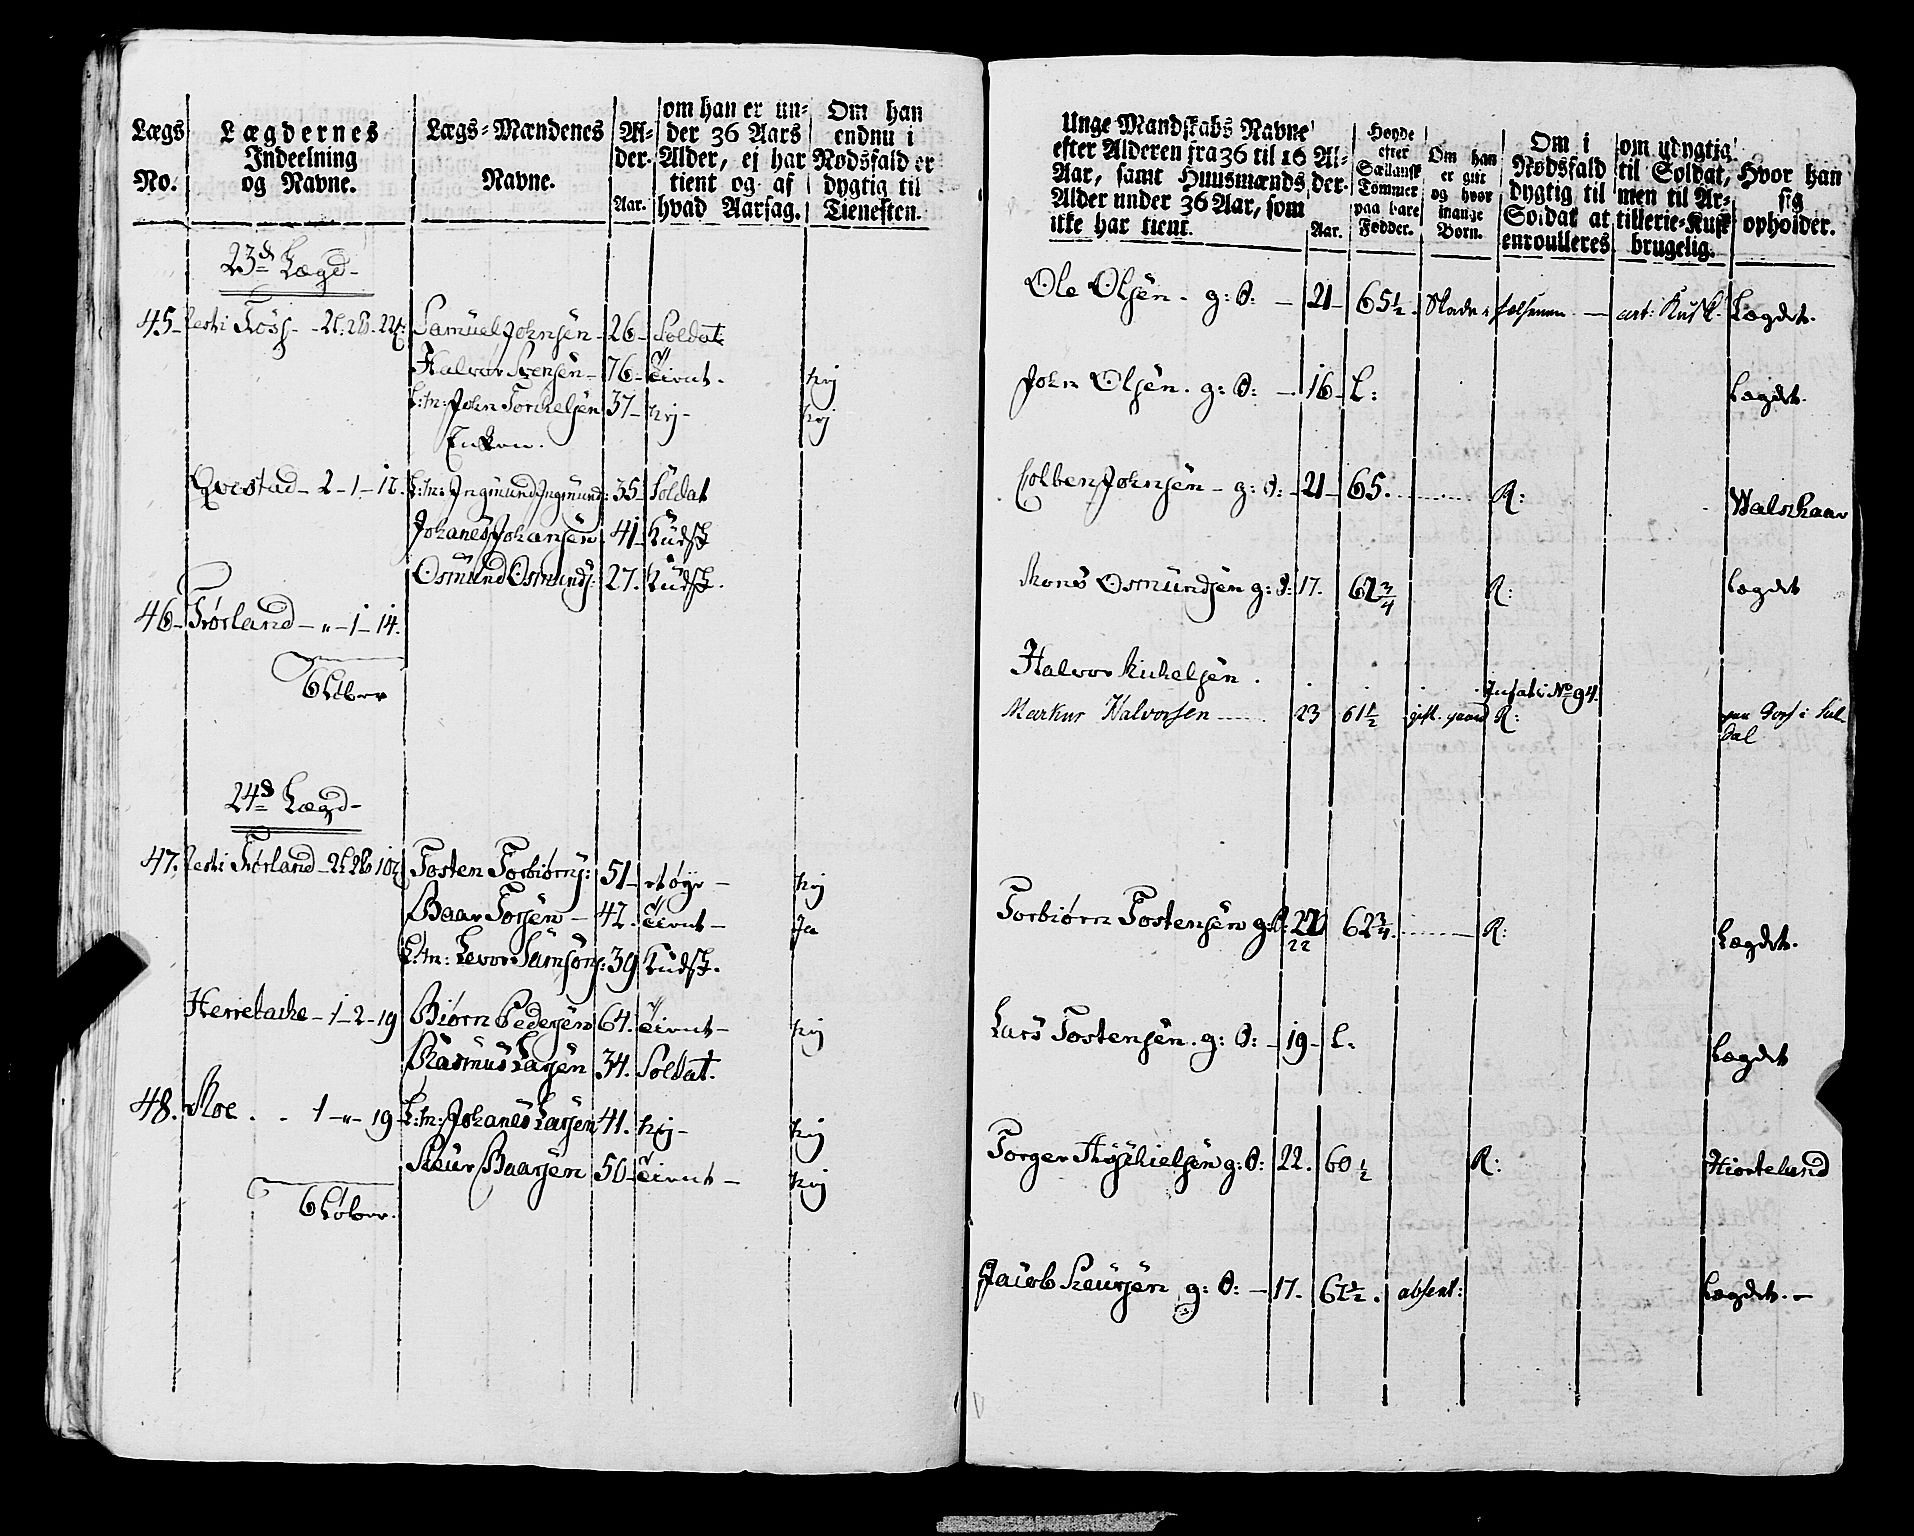 Lægs No.
Lægdernes Indeelning og Navne.
Lægs-Mændenes Navne.
Al-der. Aar.
om han er un-der 36 Aars Alder, ej har tient og af hvad Aarsag.
Om han endnu i Nødsfald er dygtig til Tienesten.
23d Lægd
45 Resti Foss
Samuel Johnsen 26 Soldat
Halvor Svensen 76 tient. Nej
L:m: John Torkelsen 37 Nej Nej
Enken.
Qvestad 2 1 12. L:m: Ingmund Ingmunds: 35 Soldat
Johanes Johansen 41 Kudsk
Osmund Osmunds: 27. Kudsk.
46 Førland „ 1 14.
6 Løber
24d Lægd
47. Resti Førland
Tosten Torbiørns: 51 Nej
Baar Torsen 42. tient Ja
L:m: Levor Samsons: 39 Kudsk.
Herrebacke 1 2 19 Biørn Pedersen 64. tient Nej
Rasmus Larsen 34. Soldat.
48. Moe . . 1 „ 19 L:m: Johanes Larsen 41. Nej Nej
Sleur Baarsen 50 tient Nej
6 Løber.
Unge Mandskabs Navne efter Alderen fra 36 til 16 Aar, samt Huusmænds Alder under 36 Aar, som ikke har tient.
Al-der. Aar.
Høyde efter Sællansk Tommer paa bare Fødder.
Om han er gift og hvor mange Børn.
Om i Nødsfald dygtig til Soldat at enroulleres
om udygtig til Soldat, men til Ar-tillerie-Kusk brugelig.
Hvor han sig opholder.
Ole Olsen. g: S: 21 65½. Skade i art: Kusk. Lægdet.
John Olsen. g: S: 16 L: Lægdet.
Colben Johnsen g: S: 21 65. R: Walskaar
Mons Osmundsen g: S: 17. 62¾ R: Lægdet
Halvor Mickelsen . . . . Indsat i No 94.
Markus Halvorsen 23 61½ R:
Torbiørn Tostensen g: S: 22 62¾. R: Lægdet.
Lars Tostensen. g: S: 19 L. Lægdet
Torger g: S: 22. 60½ R: Hiorteland
Jacob Sleursen g: S: 17. absent: Lægdet.